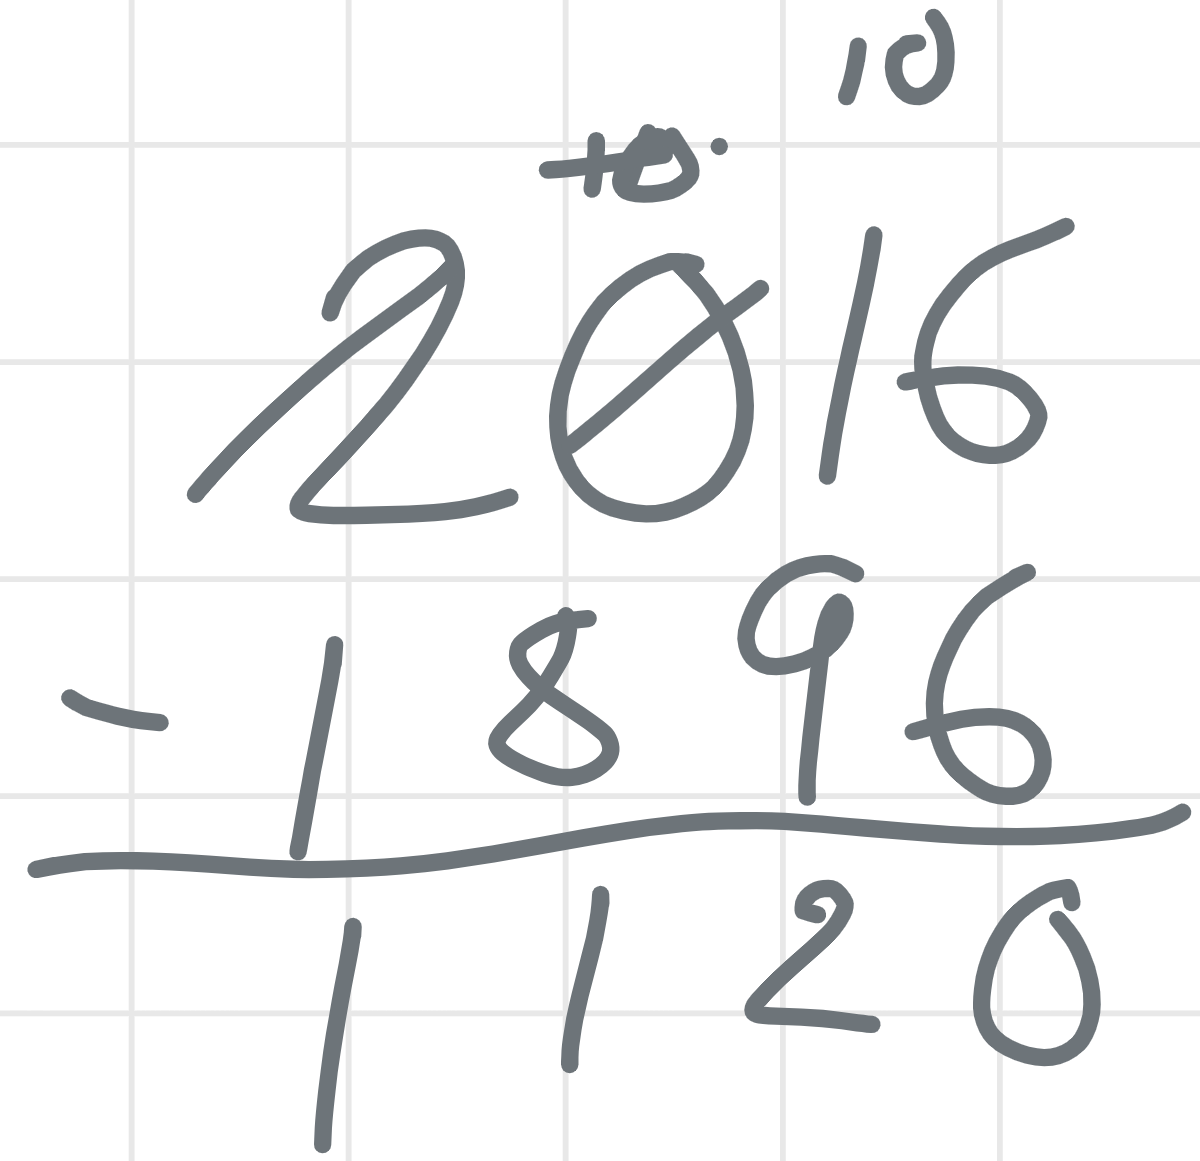 10
10
2016
- 1896
1120